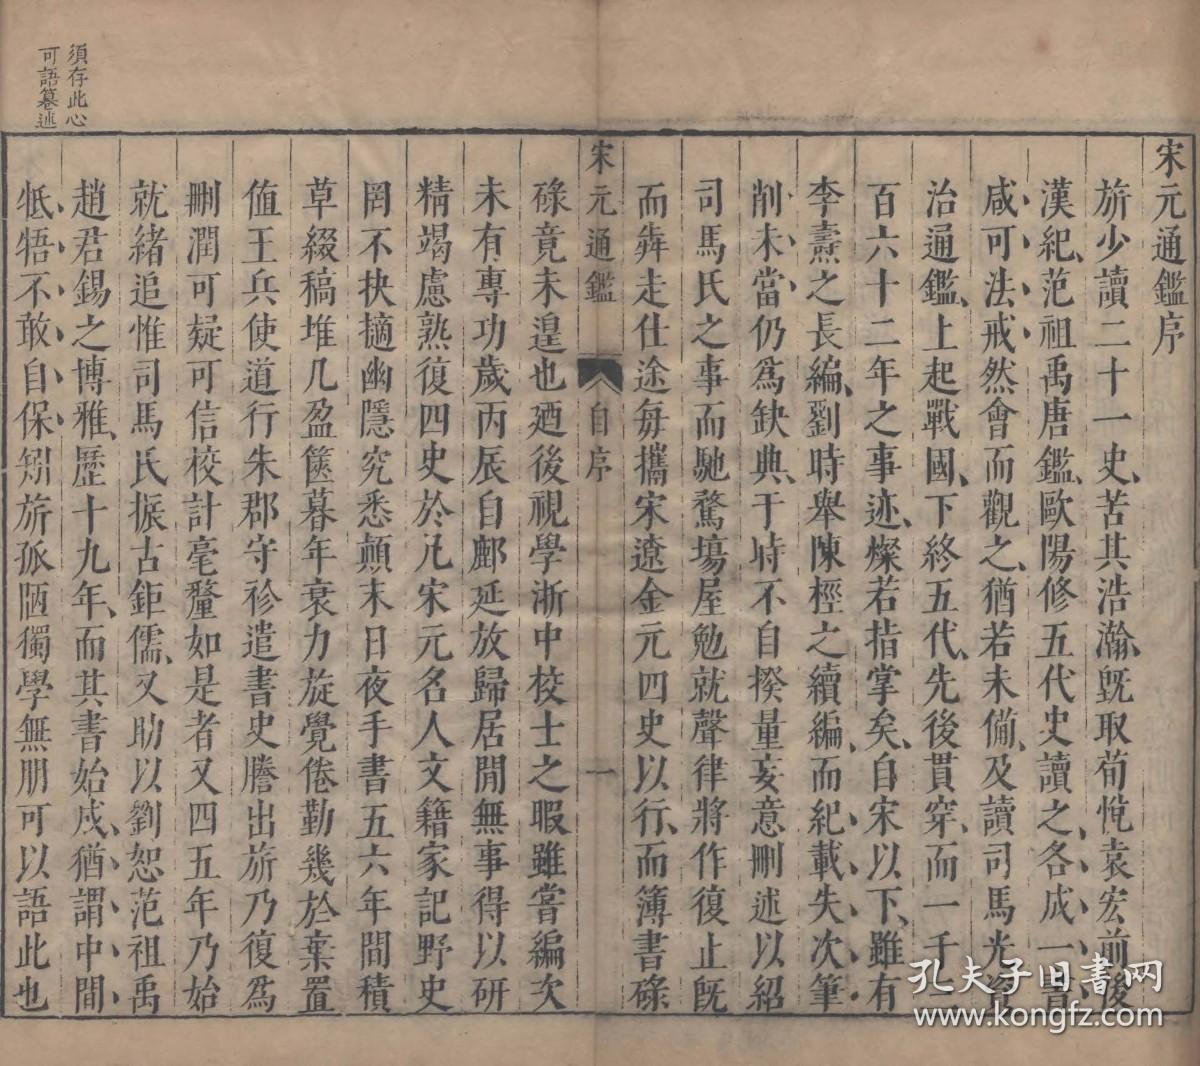 宋元通鑑序
旂少讀二十一史苦其浩瀚旣取荀悅袁宏前後
漢紀范祖禹唐鑑歐陽修五代史讀之各成一書
咸可法戒然會而觀之猶若未備及讀司馬光資
治通鑑上起戰國下終五代先後貫穿而一千三
百六十二年之事迹燦若指掌矣自宋以下雖有
李燾之長編劉時舉陳桱之續編而紀載失次筆
削未當仍爲缺典于時不自揆量妄意刪述以紹
司馬氏之事而馳騖塲屋勉就聲律將作復止旣
而犇走仕途每攜宋遼金元四史以行而簿書碌
宋元通鑑 自序 一
碌竟未遑也廼後視學浙中校士之暇雖嘗編次
未有專功歲丙辰自鄜延放歸居閒無事得以研
精竭慮熟復四史於凡宋元名人文籍家記野史
罔不抉擿幽隱究悉顛末日夜手書五六年間積
草綴稿堆几盈篋暮年衰力旋覺倦勤幾於棄置
値王兵使道行朱郡守袗遣書史謄出旂乃復爲
刪潤可疑可信校計毫釐如是者又四五年乃始
就緒追惟司馬氏振古鉅儒又助以劉恕范祖禹
趙君錫之博雅歷十九年而其書始成猶謂中間
牴牾不敢自保矧旂孤陋獨學無朋可以語此也
須存此心
可語纂述
孔夫子旧書网
www.kongfz.com